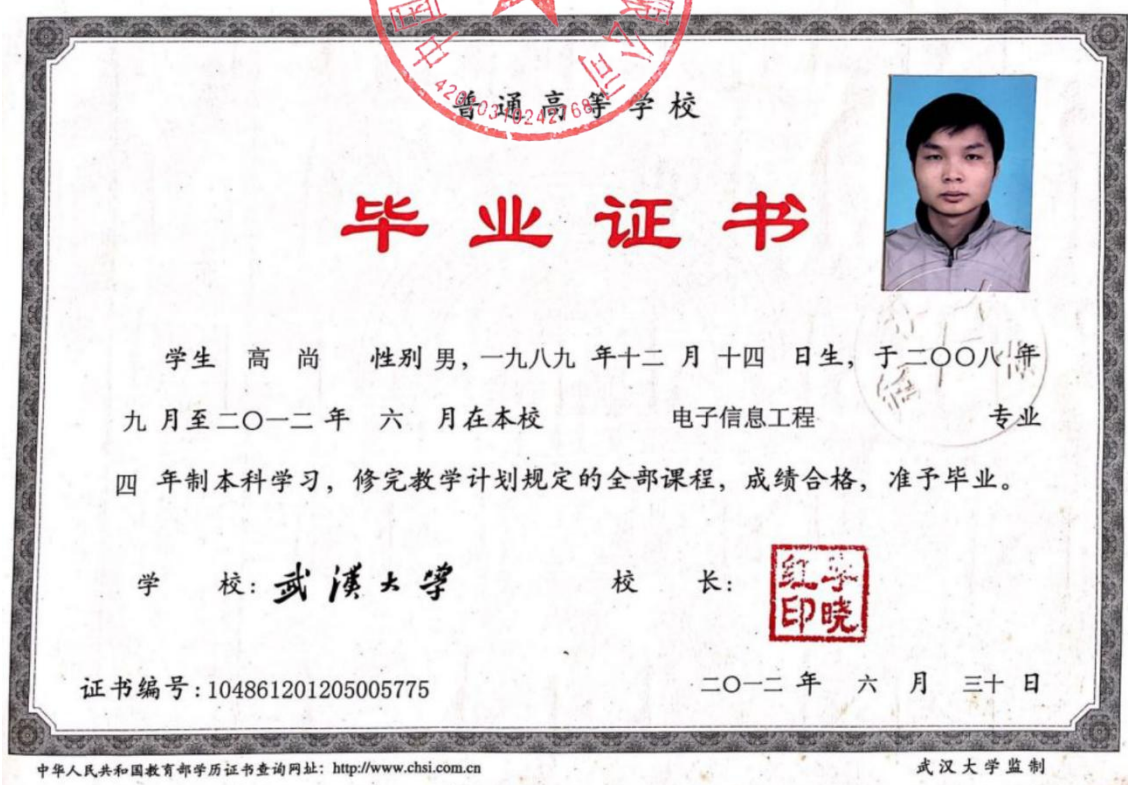 中国
限公司
普通高等学校
毕业证书
学生 高尚 性别 男, 一九八九 年十二 月 十四 日生, 于二〇〇八年
九 月至二〇一二 年 六 月在本校 电子信息工程 专业
四 年制本科学习, 修完教学计划规定的全部课程, 成绩合格, 准予毕业。
学 校: 武漢大学 校 长: 李晓红印
证书编号: 104861201205005775 二〇一二 年 六 月 三十 日
中华人民共和国教育部学历证书查询网址: http://www.chsi.com.cn 武汉大学监制